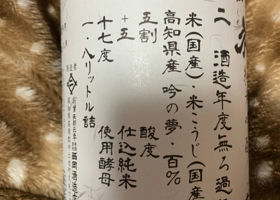 酒造年度無ろ過
米(国産)・米こうじ(国産
高知県産 吟の夢・百%
五割 酸度
+五 仕込純米
十七度 使用酵母
一・八リットル詰
西岡酒造